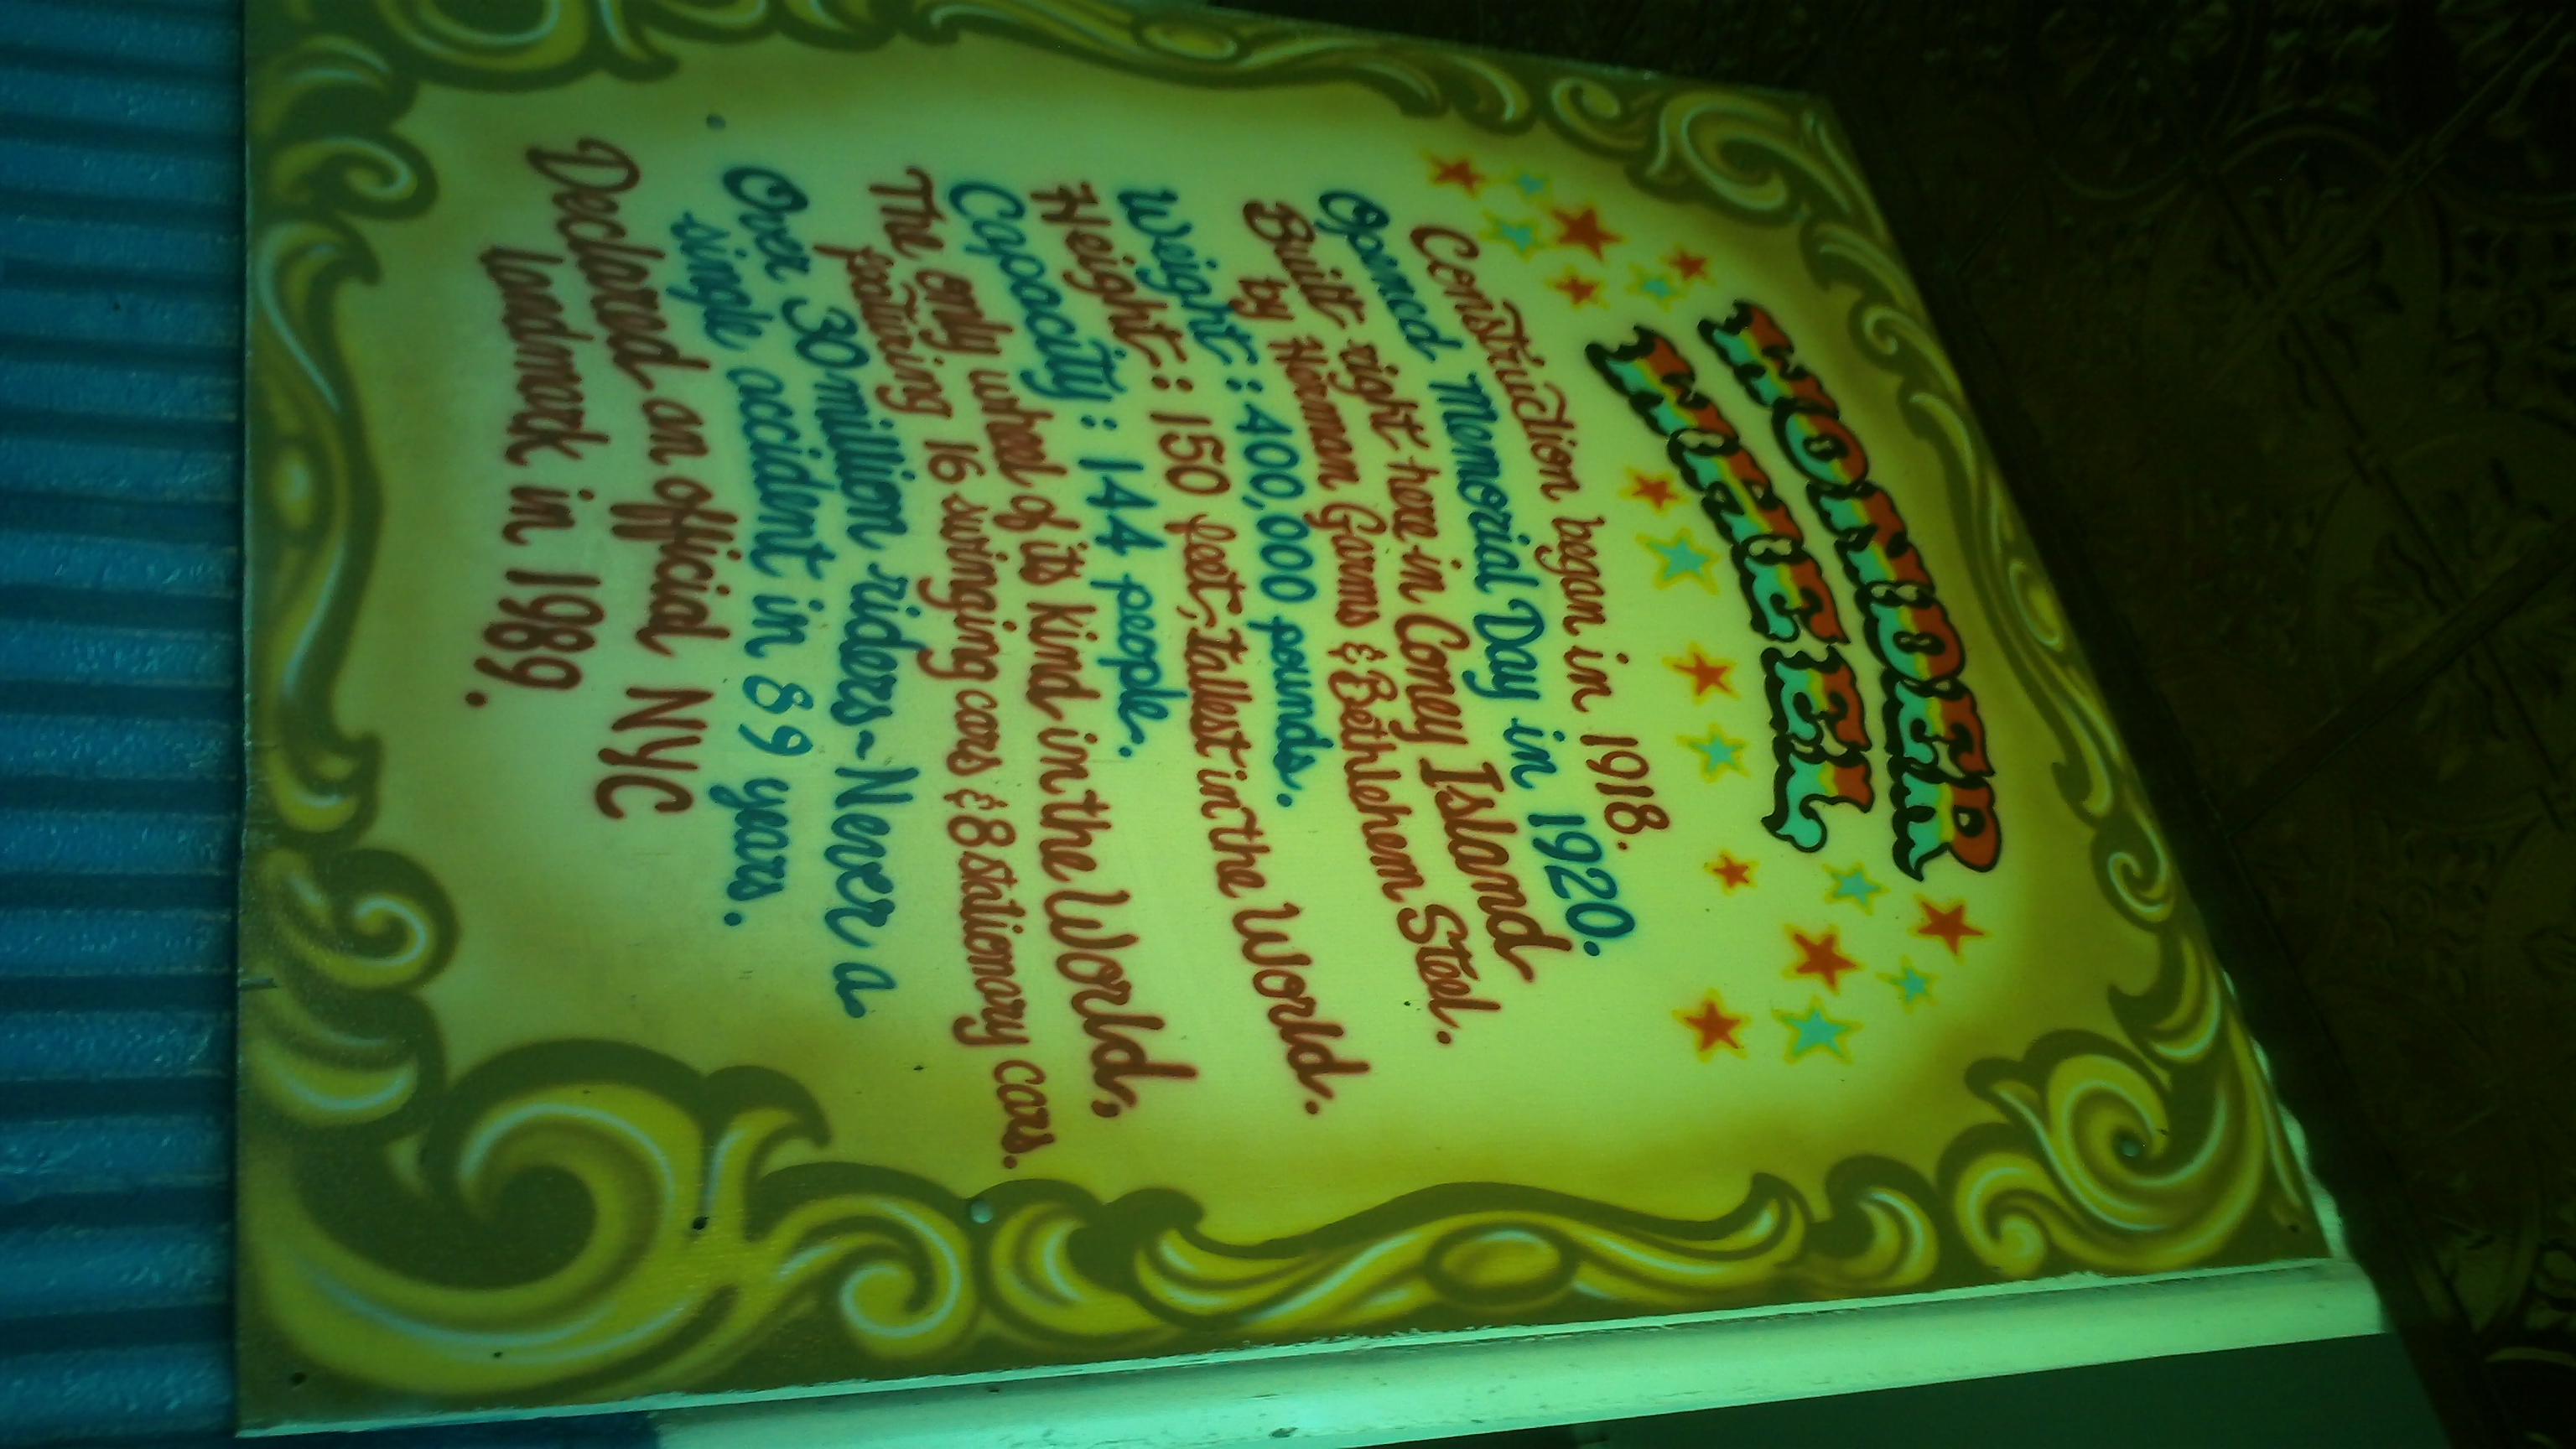 WONDER
WHEEL
Construction began in 1918.
Opened Memorial Day in 1920.
Built right here in Coney Island
by Herman Garms & Bethlehem Steel.
Weight: 400,000 pounds.
Height: 150 feet, tallest in the World.
Capacity: 144 people.
The only wheel of its kind in the World,
featuring 16 swinging cars & 8 stationary cars.
Over 30 million riders~Never a
single accident in 89 years.
Declared an official NYC
landmark in 1989.